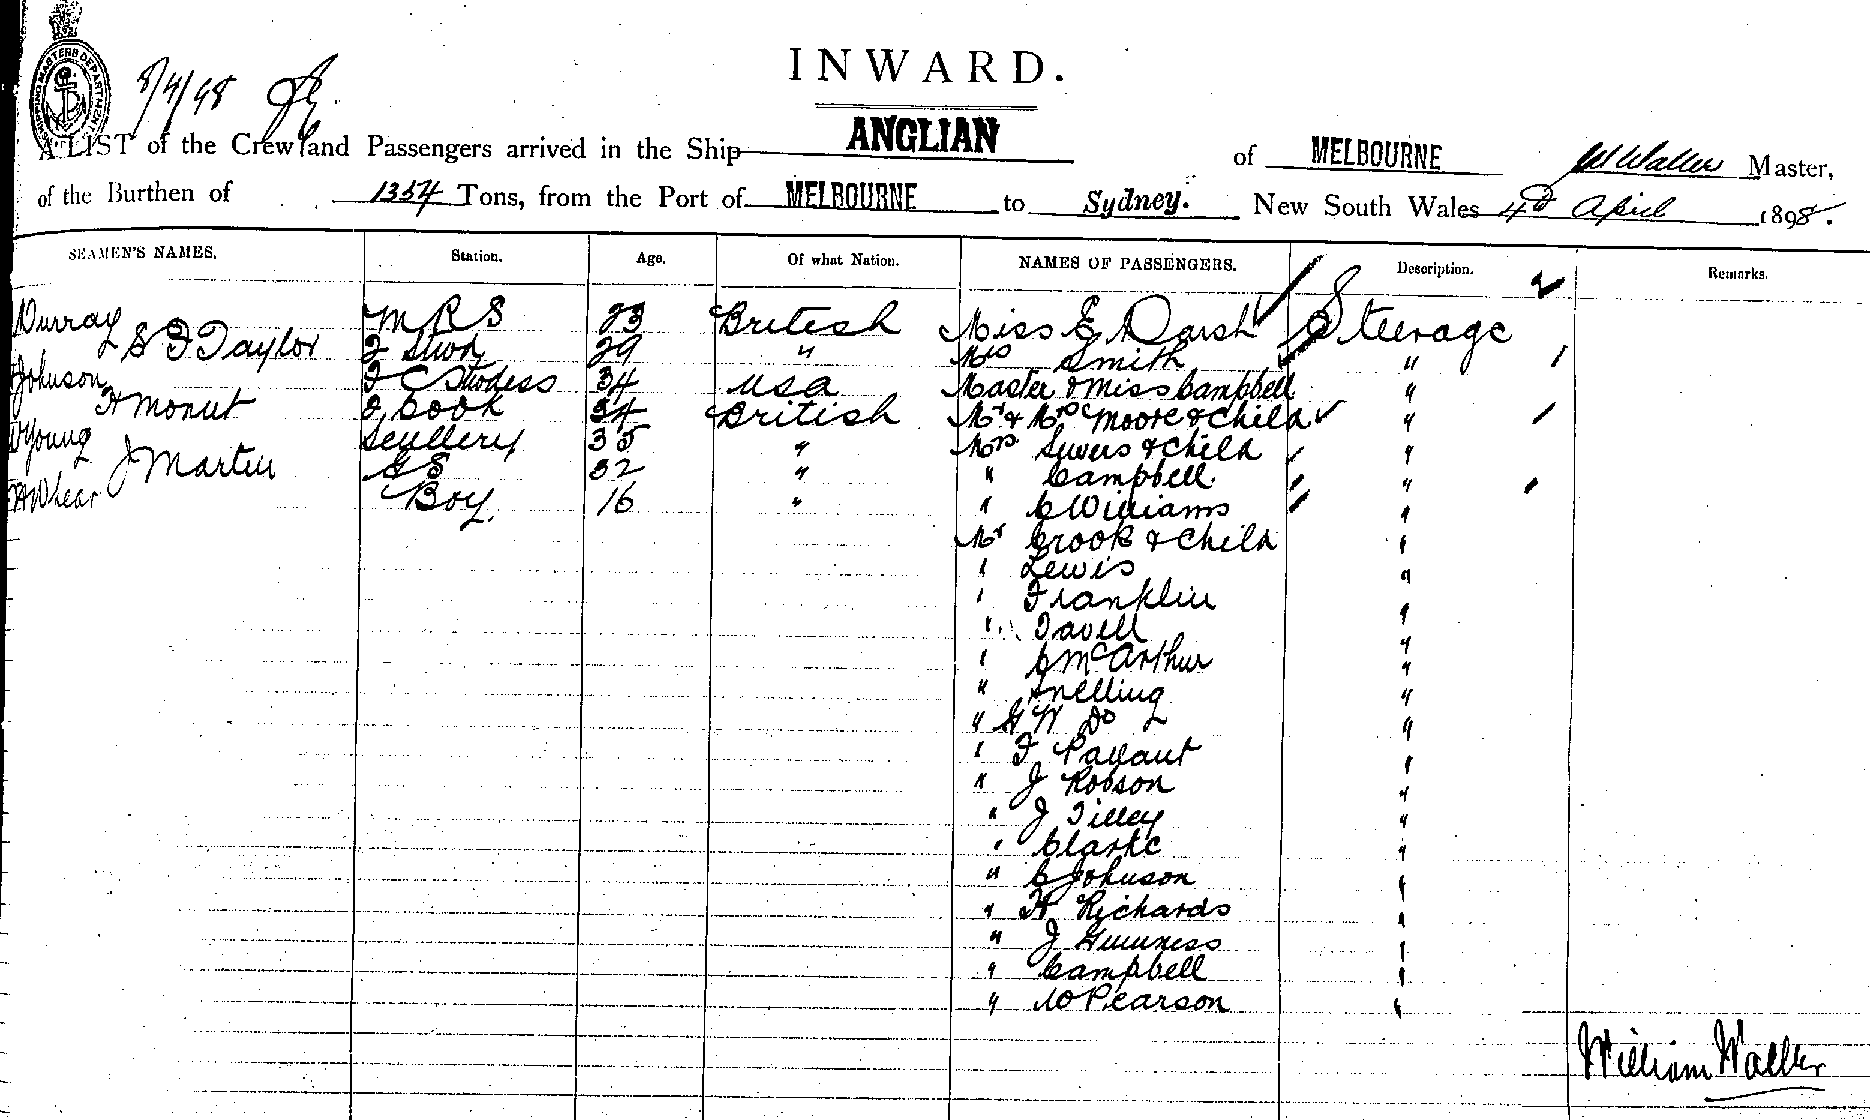 SHIPPING MASTERS DEPARTMENT
8/4/98
INWARD.
A LIST of the Crew and Passengers arrived in the Ship ANGLIAN of MELBOURNE W Waller Master,
of the Burthen of 1354 Tons, from the Port of MELBOURNE to Sydney. New South Wales 4th April 1898.
SEAMEN'S NAMES. Station. Age. Of what Nation. NAMES OF PASSENGERS. Description. Remarks.
Murray M R S 23 British Miss E Marsh Steerage
S J Taylor 2 29 " Mrs Smith "
Johnson 34 USA Master & Miss Campbell "
H Monut 2 Cook 24 British Mr & Mrs Moore & Child "
W Young Scullery 35 " Mrs & Child "
J Martin G S 32 " " Campbell "
A Whear Boy 16 " " C Williams "
Mr Crook & Child "
" Lewis "
" Franklin "
" Tavell "
" C McArthur "
" Snelling "
" G W Do "
" F Pallant "
" J Robson "
" J Tilley "
" Clarke "
" C Johnson "
" H Richards "
" J Guinness "
" Campbell "
" W Pearson "
William Waller